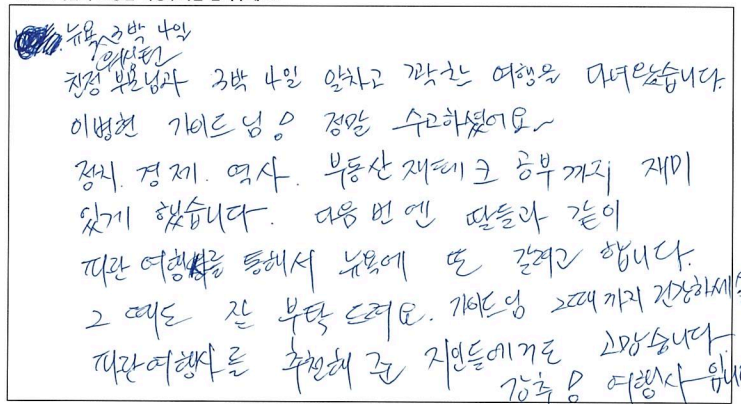 뉴욕, 워싱턴 3박 4일
친정 부모님과 3박 4일 알차고 꽉찬 여행을 다녀왔습니다.
이병현 가이드님이 정말 수고하셨어요~
정치. 경제. 역사. 부동산 재테크 공부까지 재미
있게 했습니다. 다음 번엔 딸들과 같이
파란 여행사를 통해서 뉴욕에 또 갈려고 합니다.
그 때도 잘 부탁 드려요. 가이드님 그때까지 건강하세
파란여행사를 추천해 준 지인들에게도 고맙습니다
강추 여행사